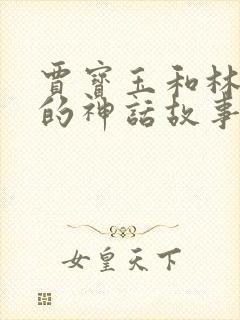 賈寶玉和林
的神話故事
女皇天下